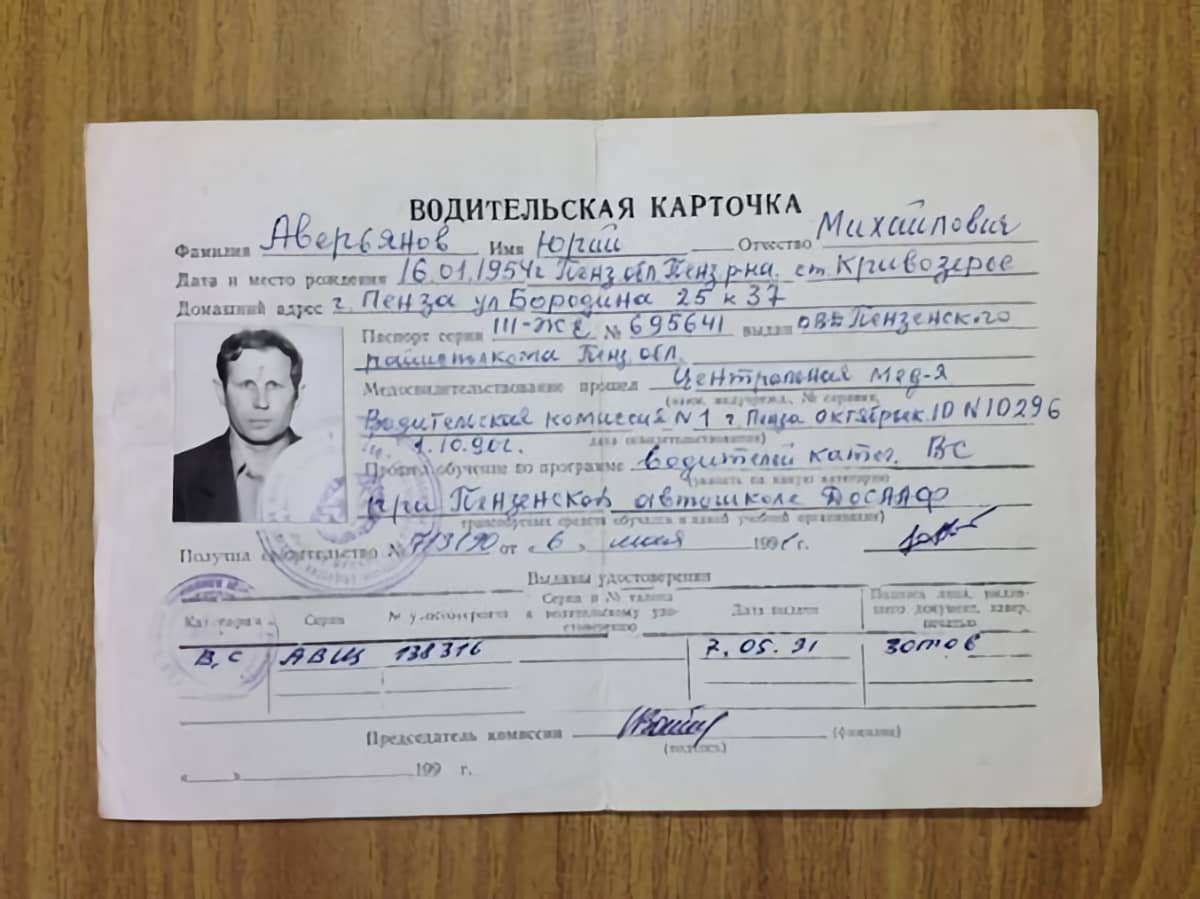 ВОДИТЕЛЬСКАЯ КАРТОЧКА
Фамилия Аверьянов Имя Юрий Отчество Михайлович
Дата и место рождения 16.01.1954г Пенз.обл Пенз р-на. ст. Кривозерье
Домашний адрес г. Пенза ул Бородина 25 к 37
Паспорт серии III-ЖЕ № 695641 выдан ОВД Пензенского
райисполкома Пенз. обл.
Медосвидетельствование прошел Центральная мед-я
(наим. медучрежд., № справки,
Водительская комиссия N1 г Пенза Октябрьск. ID N ID296
1.10.90г.
дата освидетельствования)
Прошел обучение по программе водителей катег. ВС
(указать на какую категорию
при Пензенской автошколе ДОСААФ
транспортных средств обучался и в какой учебной организации)
Получил свидетельство № 7/3/90 от «6» мая 1991г.
Выданы удостоверения
Категория Серия № удостоверения Серия и № талона к водительскому удостоверению Дата выдачи Подпись лица, выдавшего документ, завер. печатью
В,С АВЩ 138316 7.05.91 Зотов
Председатель комиссии
(подпись) (фамилия)
«____» 199 г.